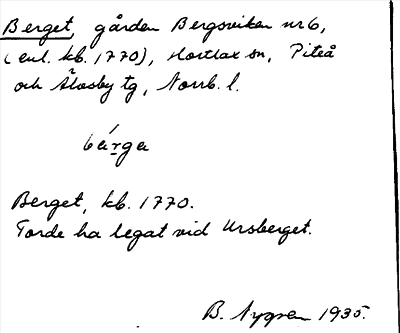 Berget, gården Bergsviken nr 6,
(enl. kb. 1770), Hortlax sn, Piteå
och Älvsby tg, Norrb. l.
bárga
Berget, kb. 1770.
Torde ha legat vid Ursberget.
B. Nygren 1935.